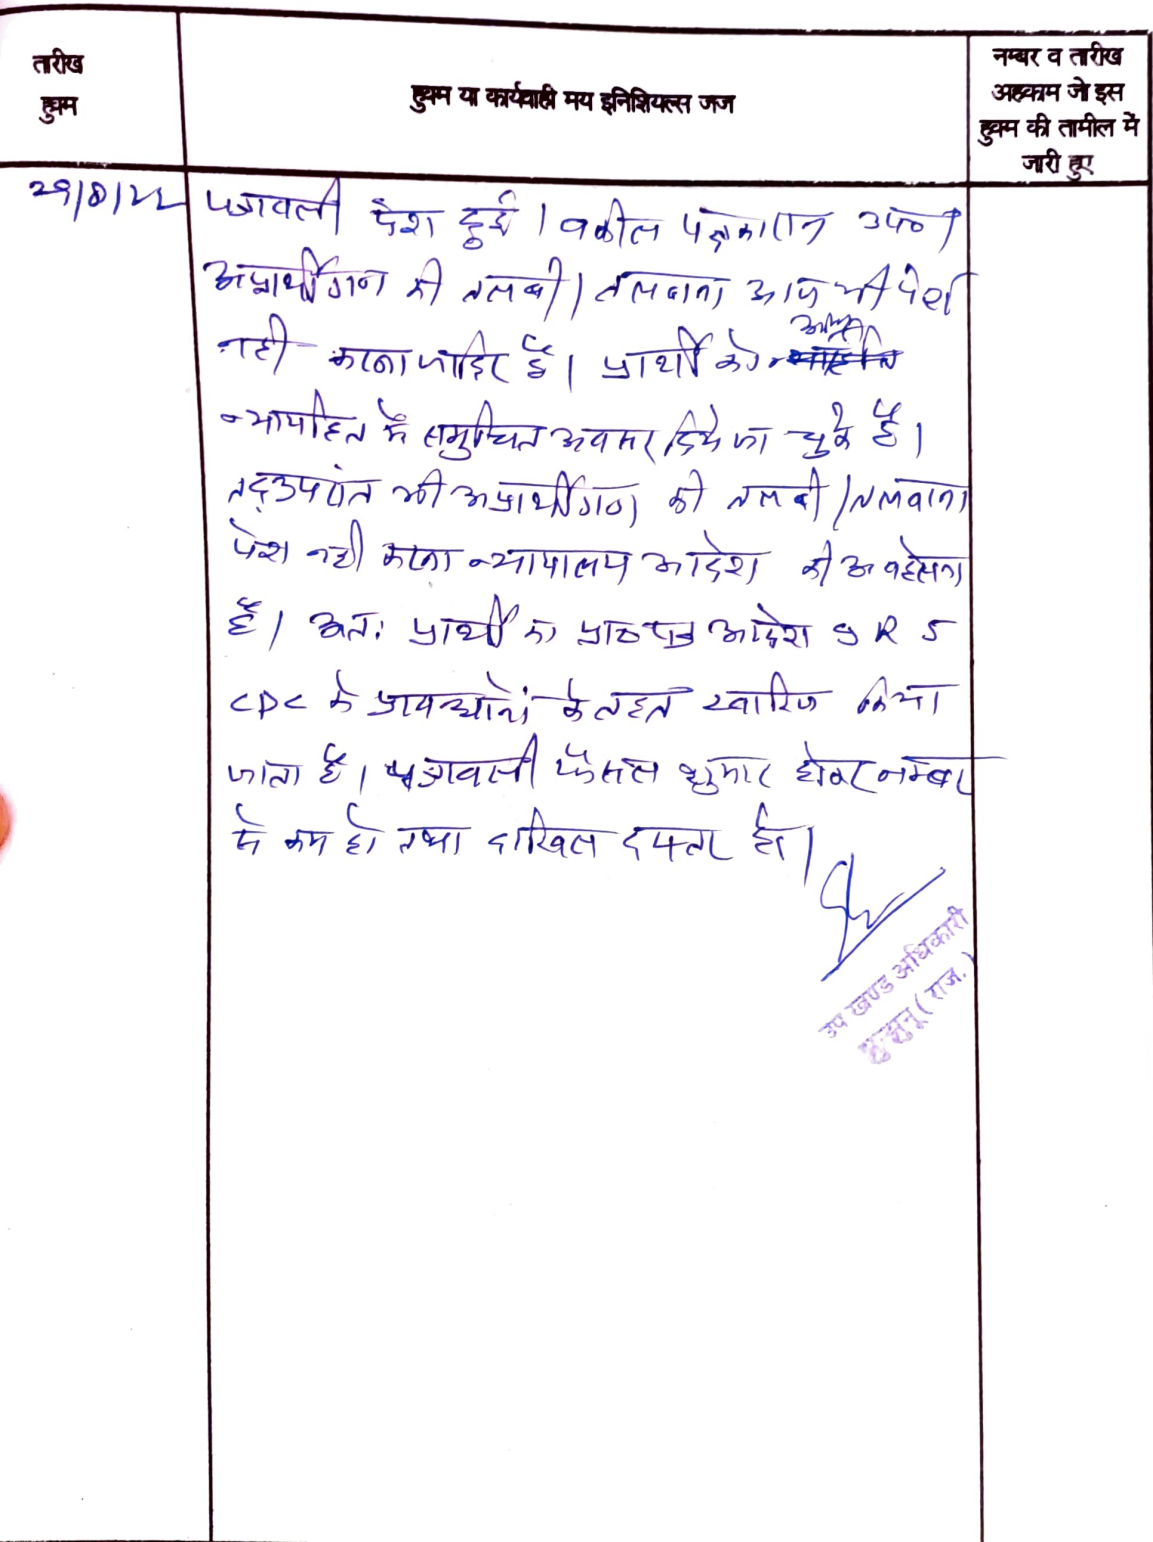 तारीख
हुक्म
हुक्म या कार्यवाही मय इनिशियल्स जज
नम्बर व तारीख
अहकाम जो इस
हुक्म की तामील में
जारी हुए
29/8/22 पत्रावली पेश हुई। वकील पक्षकारान उप०।
अप्रार्थीगण की तलबी/तलवाना आज भी पेश
नही करना जाहिर है। प्रार्थी को
न्यायहित में समुचित अवसर दिये जा चुके हैं।
तद्उपरांत भी अप्रार्थीगण की तलबी/तलवाना
पेश नही करना न्यायालय आदेश की अवहेलना
है। अतः प्रार्थी का प्रा० पत्र आदेश 9 R 5
CPC के प्रावधानों के तहत खारिज किया
जाता है। पत्रावली फैसल शुमार होकर नम्बर
से कम हो तथा दाखिल दफ्तर हो।
उप खण्ड अधिकारी
झुन्झुनू (राज.)